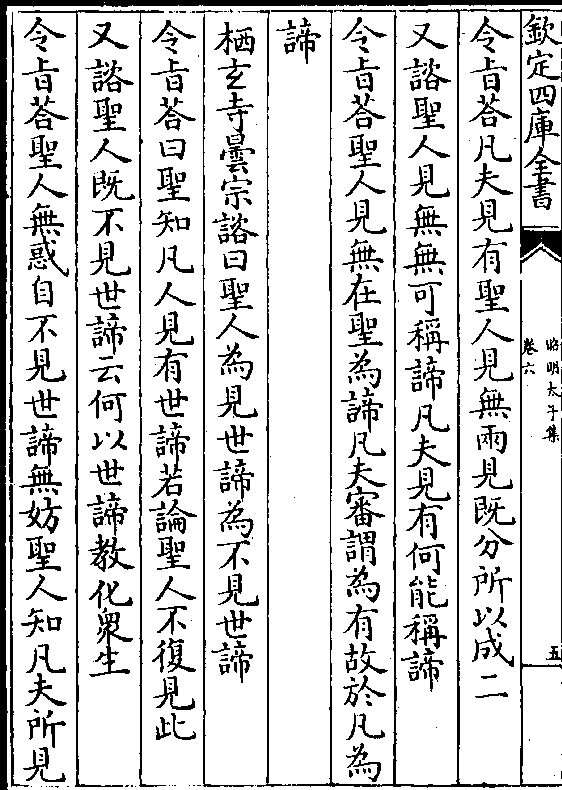 欽定四庫全書
昭明太子集
卷六
五
令旨荅凡夫見有聖人見無兩見既分所以成二
又諮聖人見無無可稱諦凡夫見有何能稱諦
令旨荅聖人見無在聖為諦凡夫審謂為有故於凡為
諦
栖玄寺曇宗諮曰聖人為見世諦為不見世諦
令旨荅曰聖知凡人見有世諦若論聖人不復見此
又諮聖人既不見世諦云何以世諦教化衆生
令旨荅聖人無惑自不見世諦無妨聖人知凡夫所見